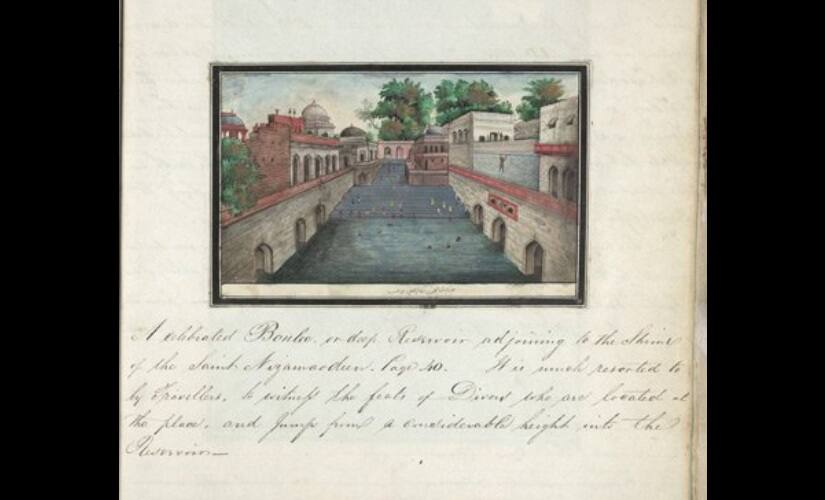 A celebrated Bowlee, or deep Reservoir adjoining to the Shrine
of the Saint Nizamoodeen. Page 40. It is much resorted to
by Travellers, to witness the feats of Divers who are located at
the place, and Jump from a considerable height into the
Reservoir—